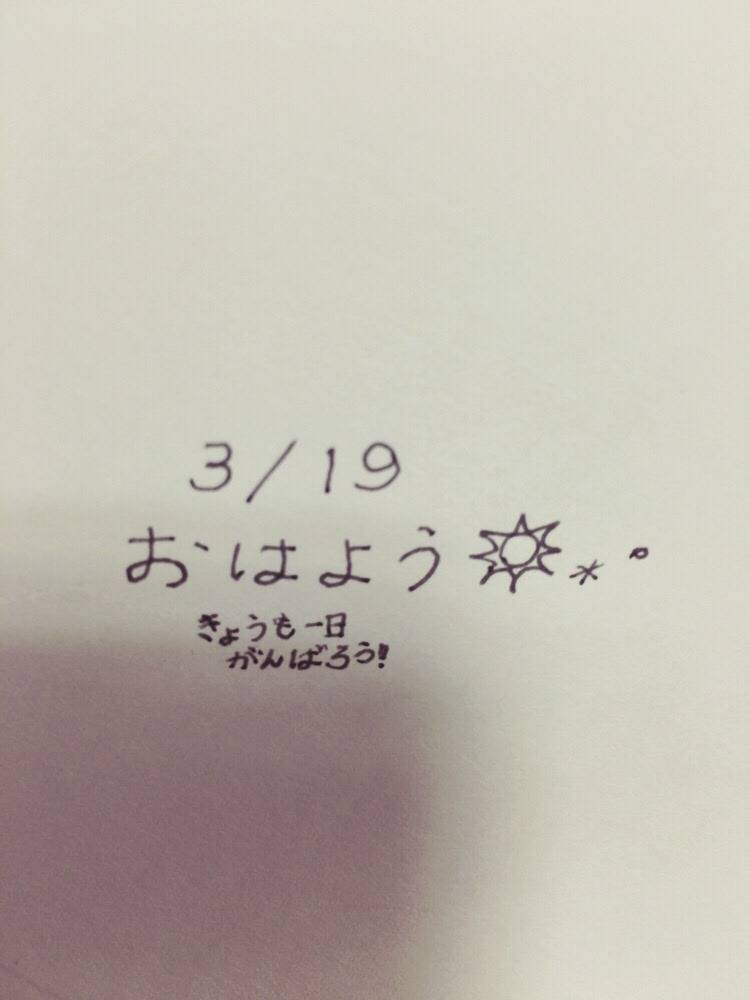 3/19
おはよう☼*°
きょうも一日
がんばろう!